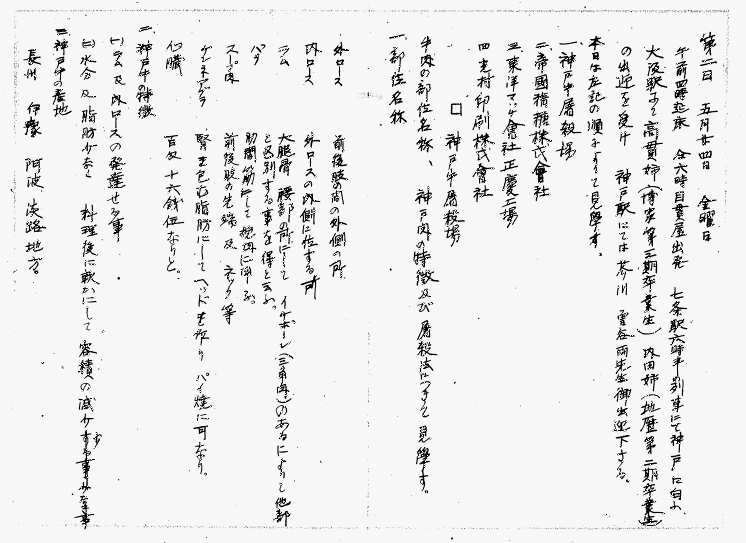 第二日　五月廿四日　金曜日
午前四時起床　仝六時日貫屋出発　七条駅六時半の列車にて神戸に向ふ
大阪駅にて高貫姉(博家第三期卒業生)　内田姉(地歴第二期卒業生)
の出迎を受け　神戸駅にては芥川　雲谷両先生御出迎下さる。
本日は左記の順によりて見学す。
一、神戸牛屠殺場
二、帝國積糖株式會社
三、東洋マッチ會社正慶工場
四、光村印刷株式會社
□　神戸牛屠殺場
牛肉の部位名称、神戸肉の特徴及び屠殺法につきて見学す。
一、部位名称
外ロース　前後肢の間の外側の所
内ロース　外ロースの内側に位する所
ラム　大腿骨　腰部の所にして　イチボーン(三角肉)のあるによりて他部
と区別する事を得と云ふ。
バラ　肋間筋にして　挽肉に用ふ。
スープ肉　前後肢の先端及　ネック等
ケンネアブラ　腎を包む脂肪にしてヘッドを作り　パイ焼に可なり。
心臓　百匁　十六銭位なりと。
二、神戸牛の特徴
(一)ラム及内ロースの発達せる事
(二)水分及脂肪少なく　料理後に軟かにして。容積の減少する事少なき事
三、神戸牛の産地
長州　伊豫　阿波　淡路地方。